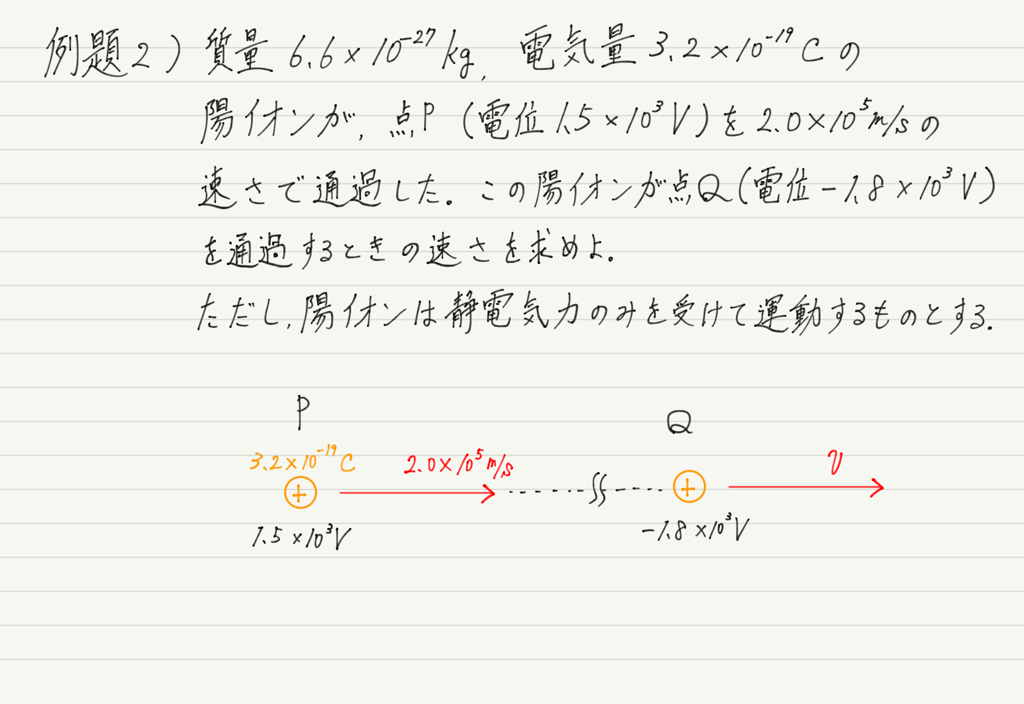 例題2) 質量 6.6×10⁻²⁷ kg, 電気量 3.2×10⁻¹⁹ C の
陽イオンが, 点P (電位 1.5×10³ V) を 2.0×10⁵ m/s の
速さで通過した. この陽イオンが点Q (電位 −1.8×10³ V)
を通過するときの速さを求めよ.
ただし, 陽イオンは静電気力のみを受けて運動するものとする.
P Q
3.2×10⁻¹⁹ C 2.0×10⁵ m/s v
+ +
1.5×10³ V −1.8×10³ V